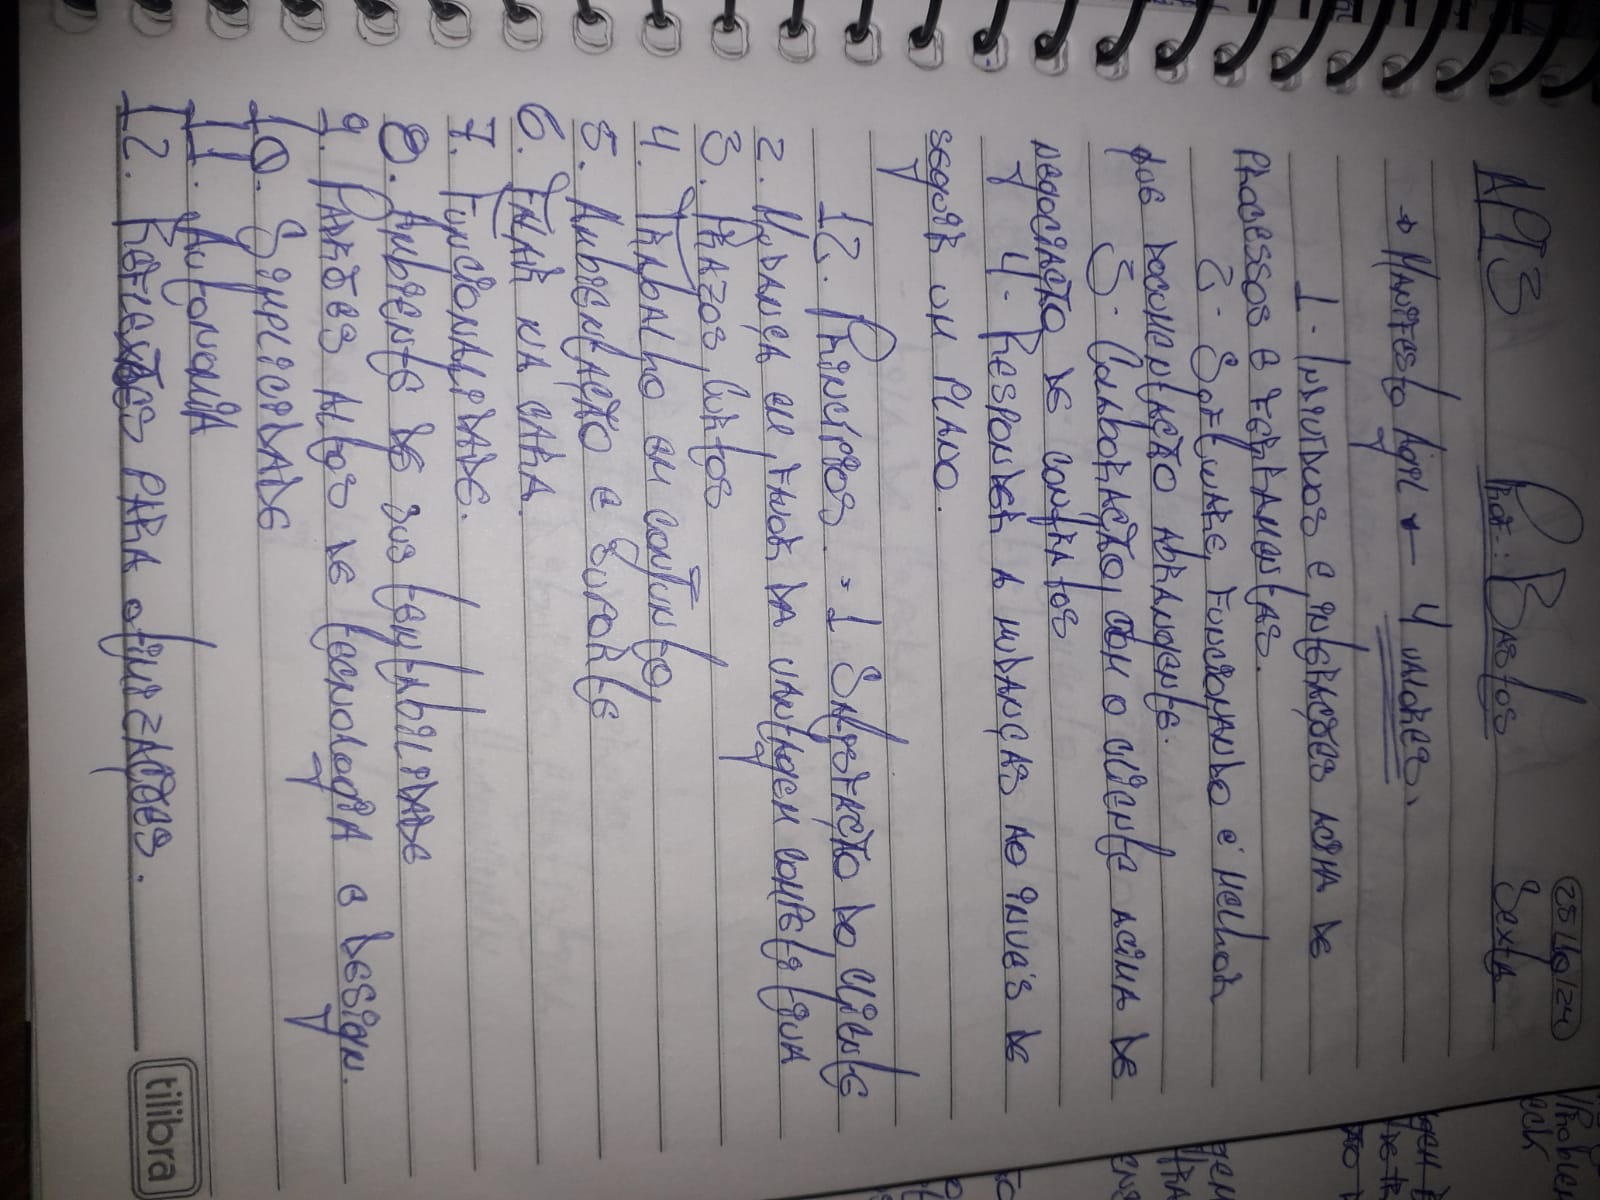 API3 Prof.: Bastos 25/10/24
Sexta
→ Manifesto Ágil - 4 valores.
1 - Indivíduos e interações acima de
processos e ferramentas.
2 - Software funcionando é melhor
que documentação abrangente.
3 - Colaboração com o cliente acima de
negociação de contratos
4 - Responder a mudanças ao invés de
seguir um plano.
12. Princípios. = 1 Satisfação do cliente
2. Mudança em favor da vantagem competitiva
3. Prazos curtos
4. Trabalho em conjunto
5. Ambientação e suporte
6. Falar na cara.
7. Funcionalidade.
8. Ambiente de sustentabilidade
9. Padrões altos de tecnologia e design.
10. Simplicidade
11. Autonomia
12. Reflexões para otimizações.
tilibra